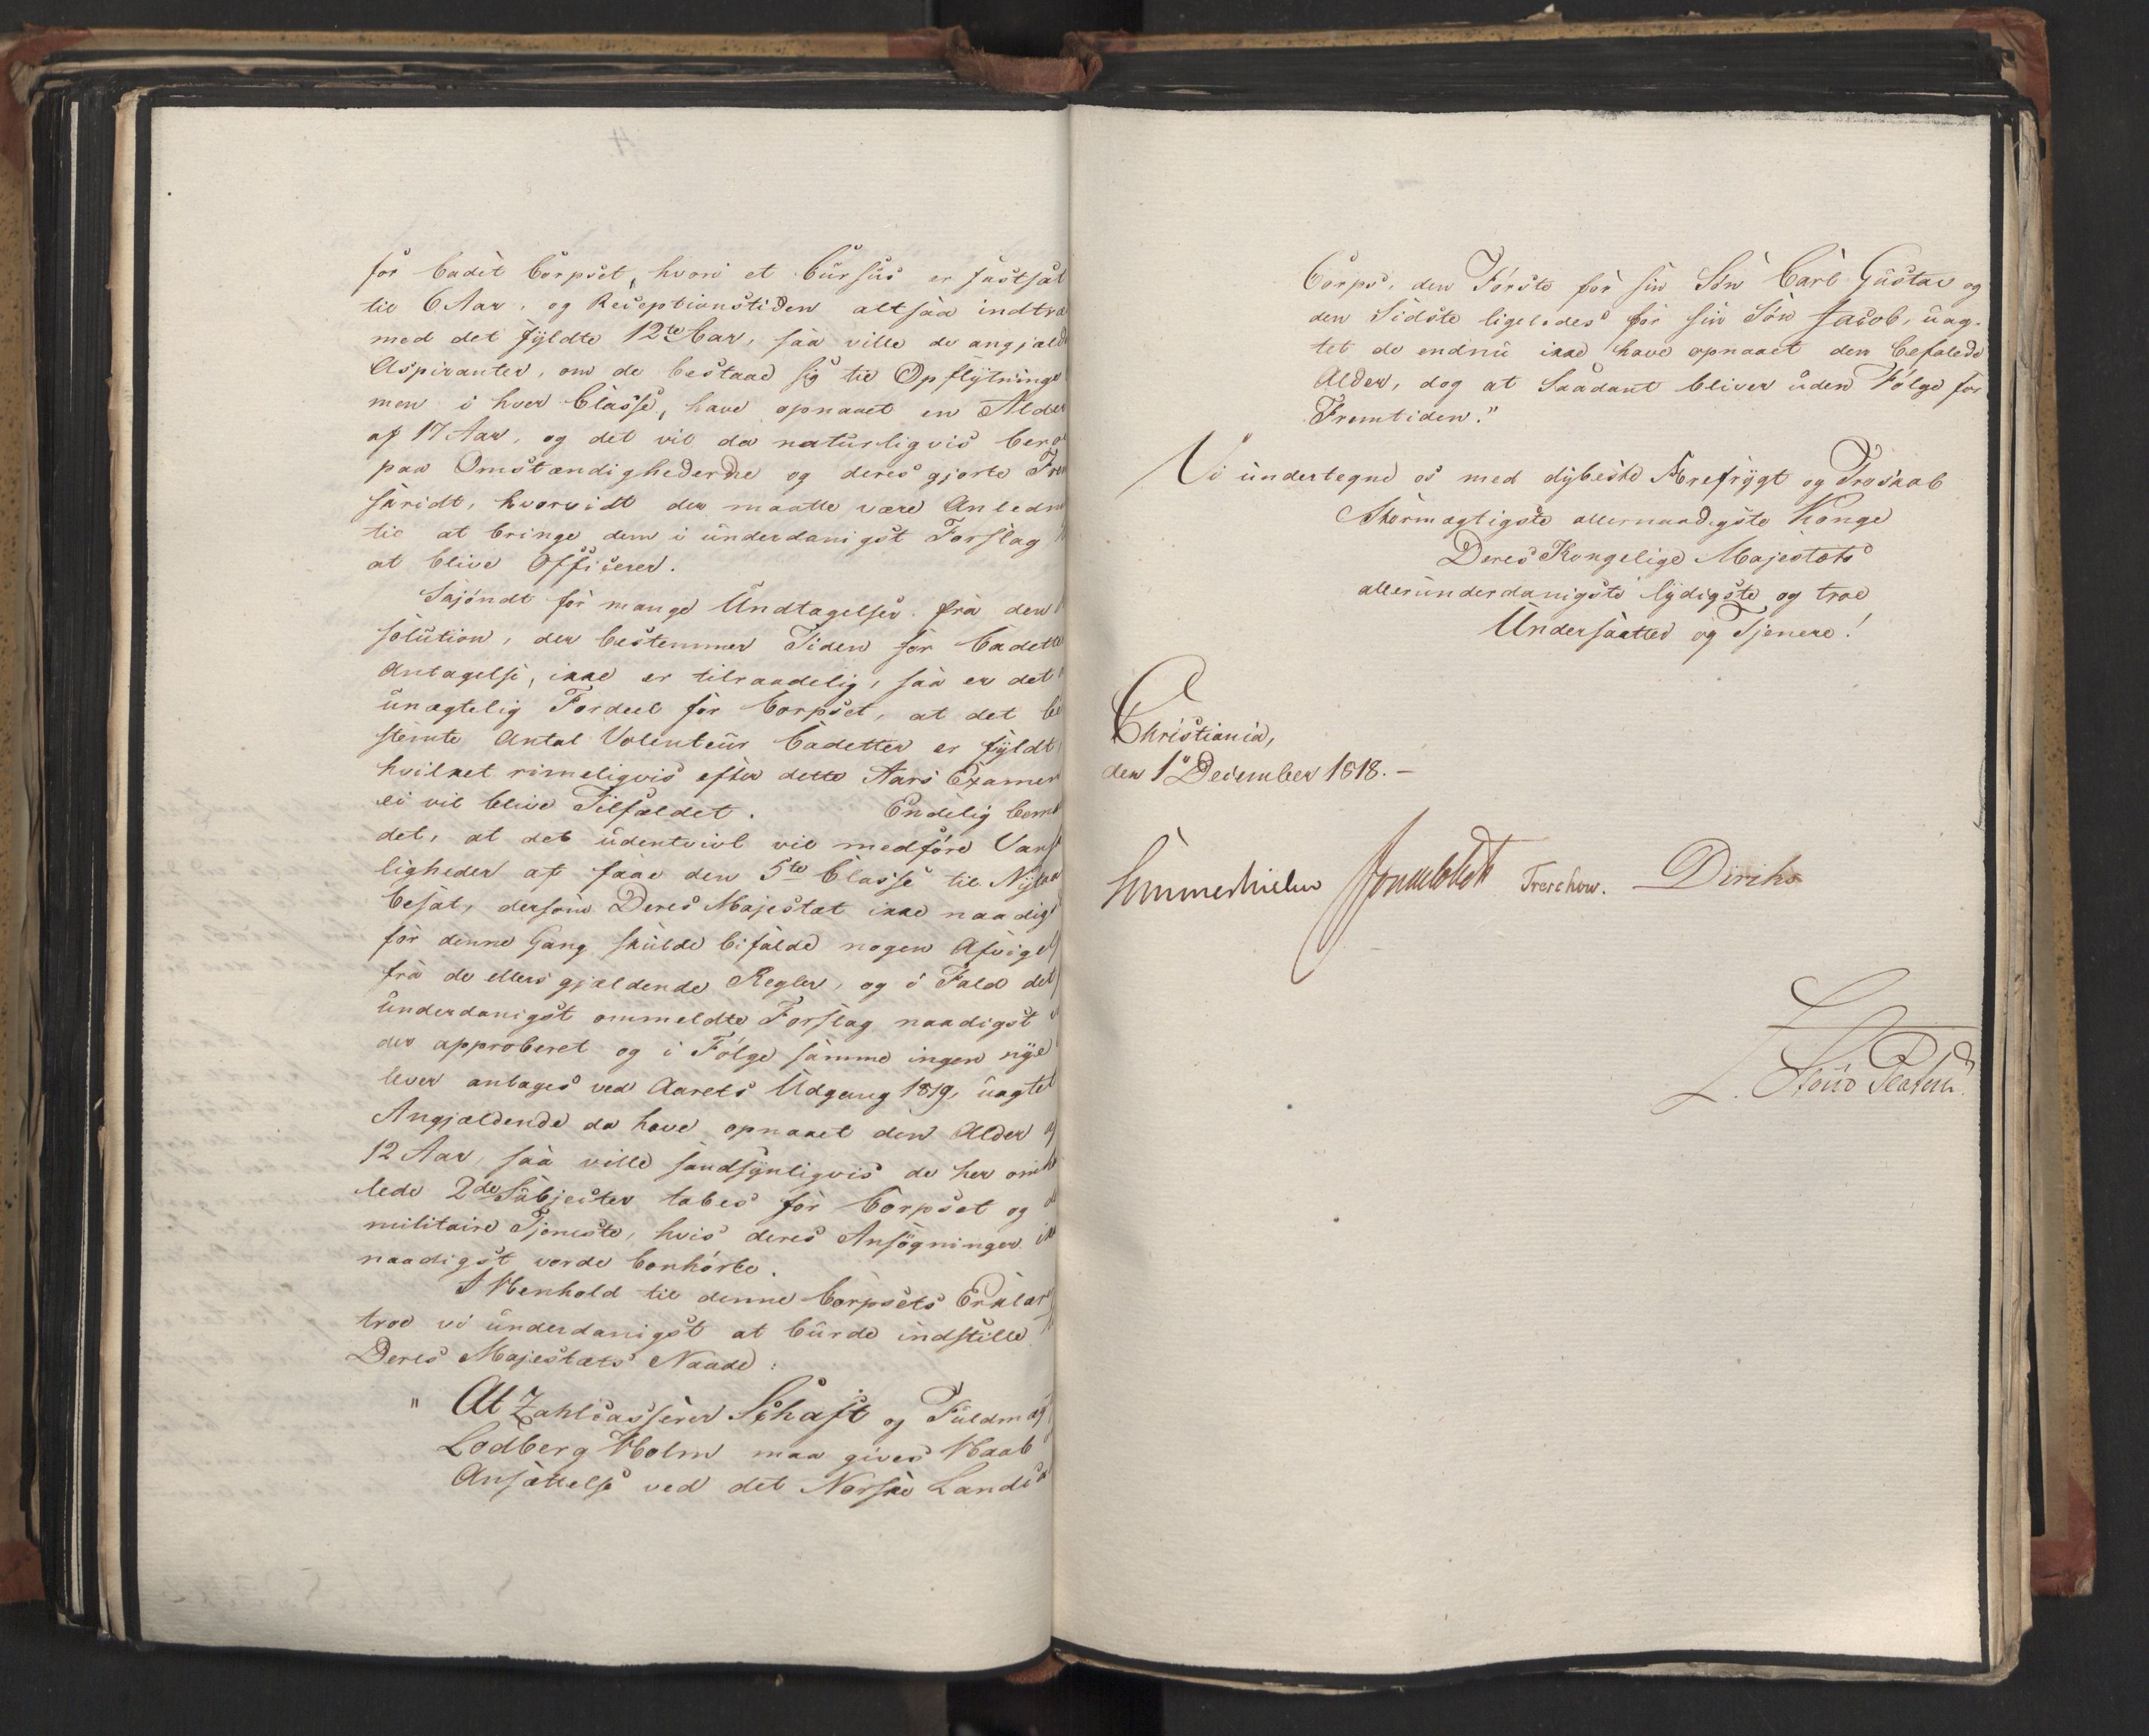 for Cadet Corpset, hvori et Cursus er fastsat
til 6 Aar, og Receptionstiden altsaa indtræ
med det fyldte 12te Aar, saa ville de angjæld
Aspiranter, om de bestaae sig til Opflytninge
men i hver Classe, have opnaaet en Alder
af 17 Aar, og det vil da naturligvis bero
paa Omstændighederne og deres gjorte Frem
skridt, hvorvidt der maatte være Anledn
til at bringe dem i underdanigst Forslag
at blive Officerer.
Skjöndt for mange Undtagelser fra den
solution, der bestemmer Tiden for Cadette
Antagelse, ikke er tilraadelig, saa er det
unægtelig Fordeel for Corpset, at det be
stemte Antal Volenteur Cadetter er fyldt,
hvilket rimeligvis efter dette Aars Examen
ei vil blive Tilfældet. Endelig bem
det, at det udentvivl vil medföre Vansk
ligheder at faae den 5te Classe til Nytaar
besat, dersom Deres Majestæt ikke naadigst
for denne Gang skulde bifalde nogen Afvigels
fra de ellers gjældende Regler, og i Fald det
underdanigst ommeldte Forslag naadigst
der approberet og i Fölge samme ingen nye
lever antages ved Aarets Udgang 1819, uagtet
Angjældende da have opnaaet den Alder af
12 Aar, saa ville sandsynligvis de her om
lede 2de Subjecter tabes for Corpset og
militaire Tjeneste, hvis deres Ansögninger ik
naadigst vorde bönhörte.
I Henhold til denne Corpsets Erklær
troe vi underdanigst at burde indstille
Deres Majestæts Naade:
" At Zahlcasserer Schaft og Fuldmæg
Lodberg Holm maa gives Haab
Ansættelse ved det Norske Land
Corps, den Förste for sin Sön Carl Gustav og
den Sidste ligeledes for sin Sön Jacob, uag-
tet de endnu ikke have opnaaet den befalede
Alder, dog at Saadant bliver uden Fölge for
Fremtiden."
Vi undertegne os med dybeste Ærefrygt og Troskab
Stormægtigste allernaadigste Konge
Deres Kongelige Majestæts
allerunderdanigste lydigste og troe
Undersaatter og Tjenere!
Christiania,
den 1e December 1818.-
Sommerhielm Treschow. Diriks